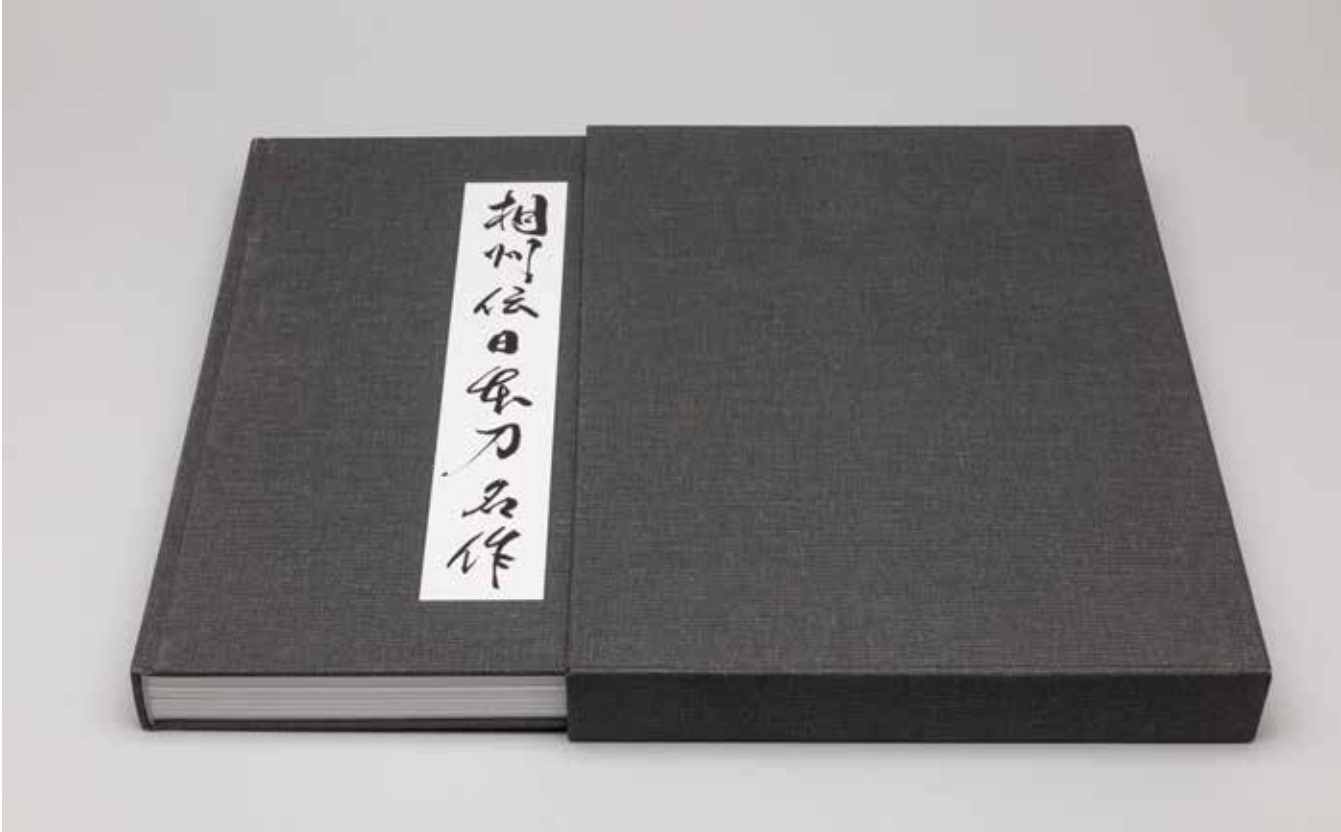 相州伝日本刀名作